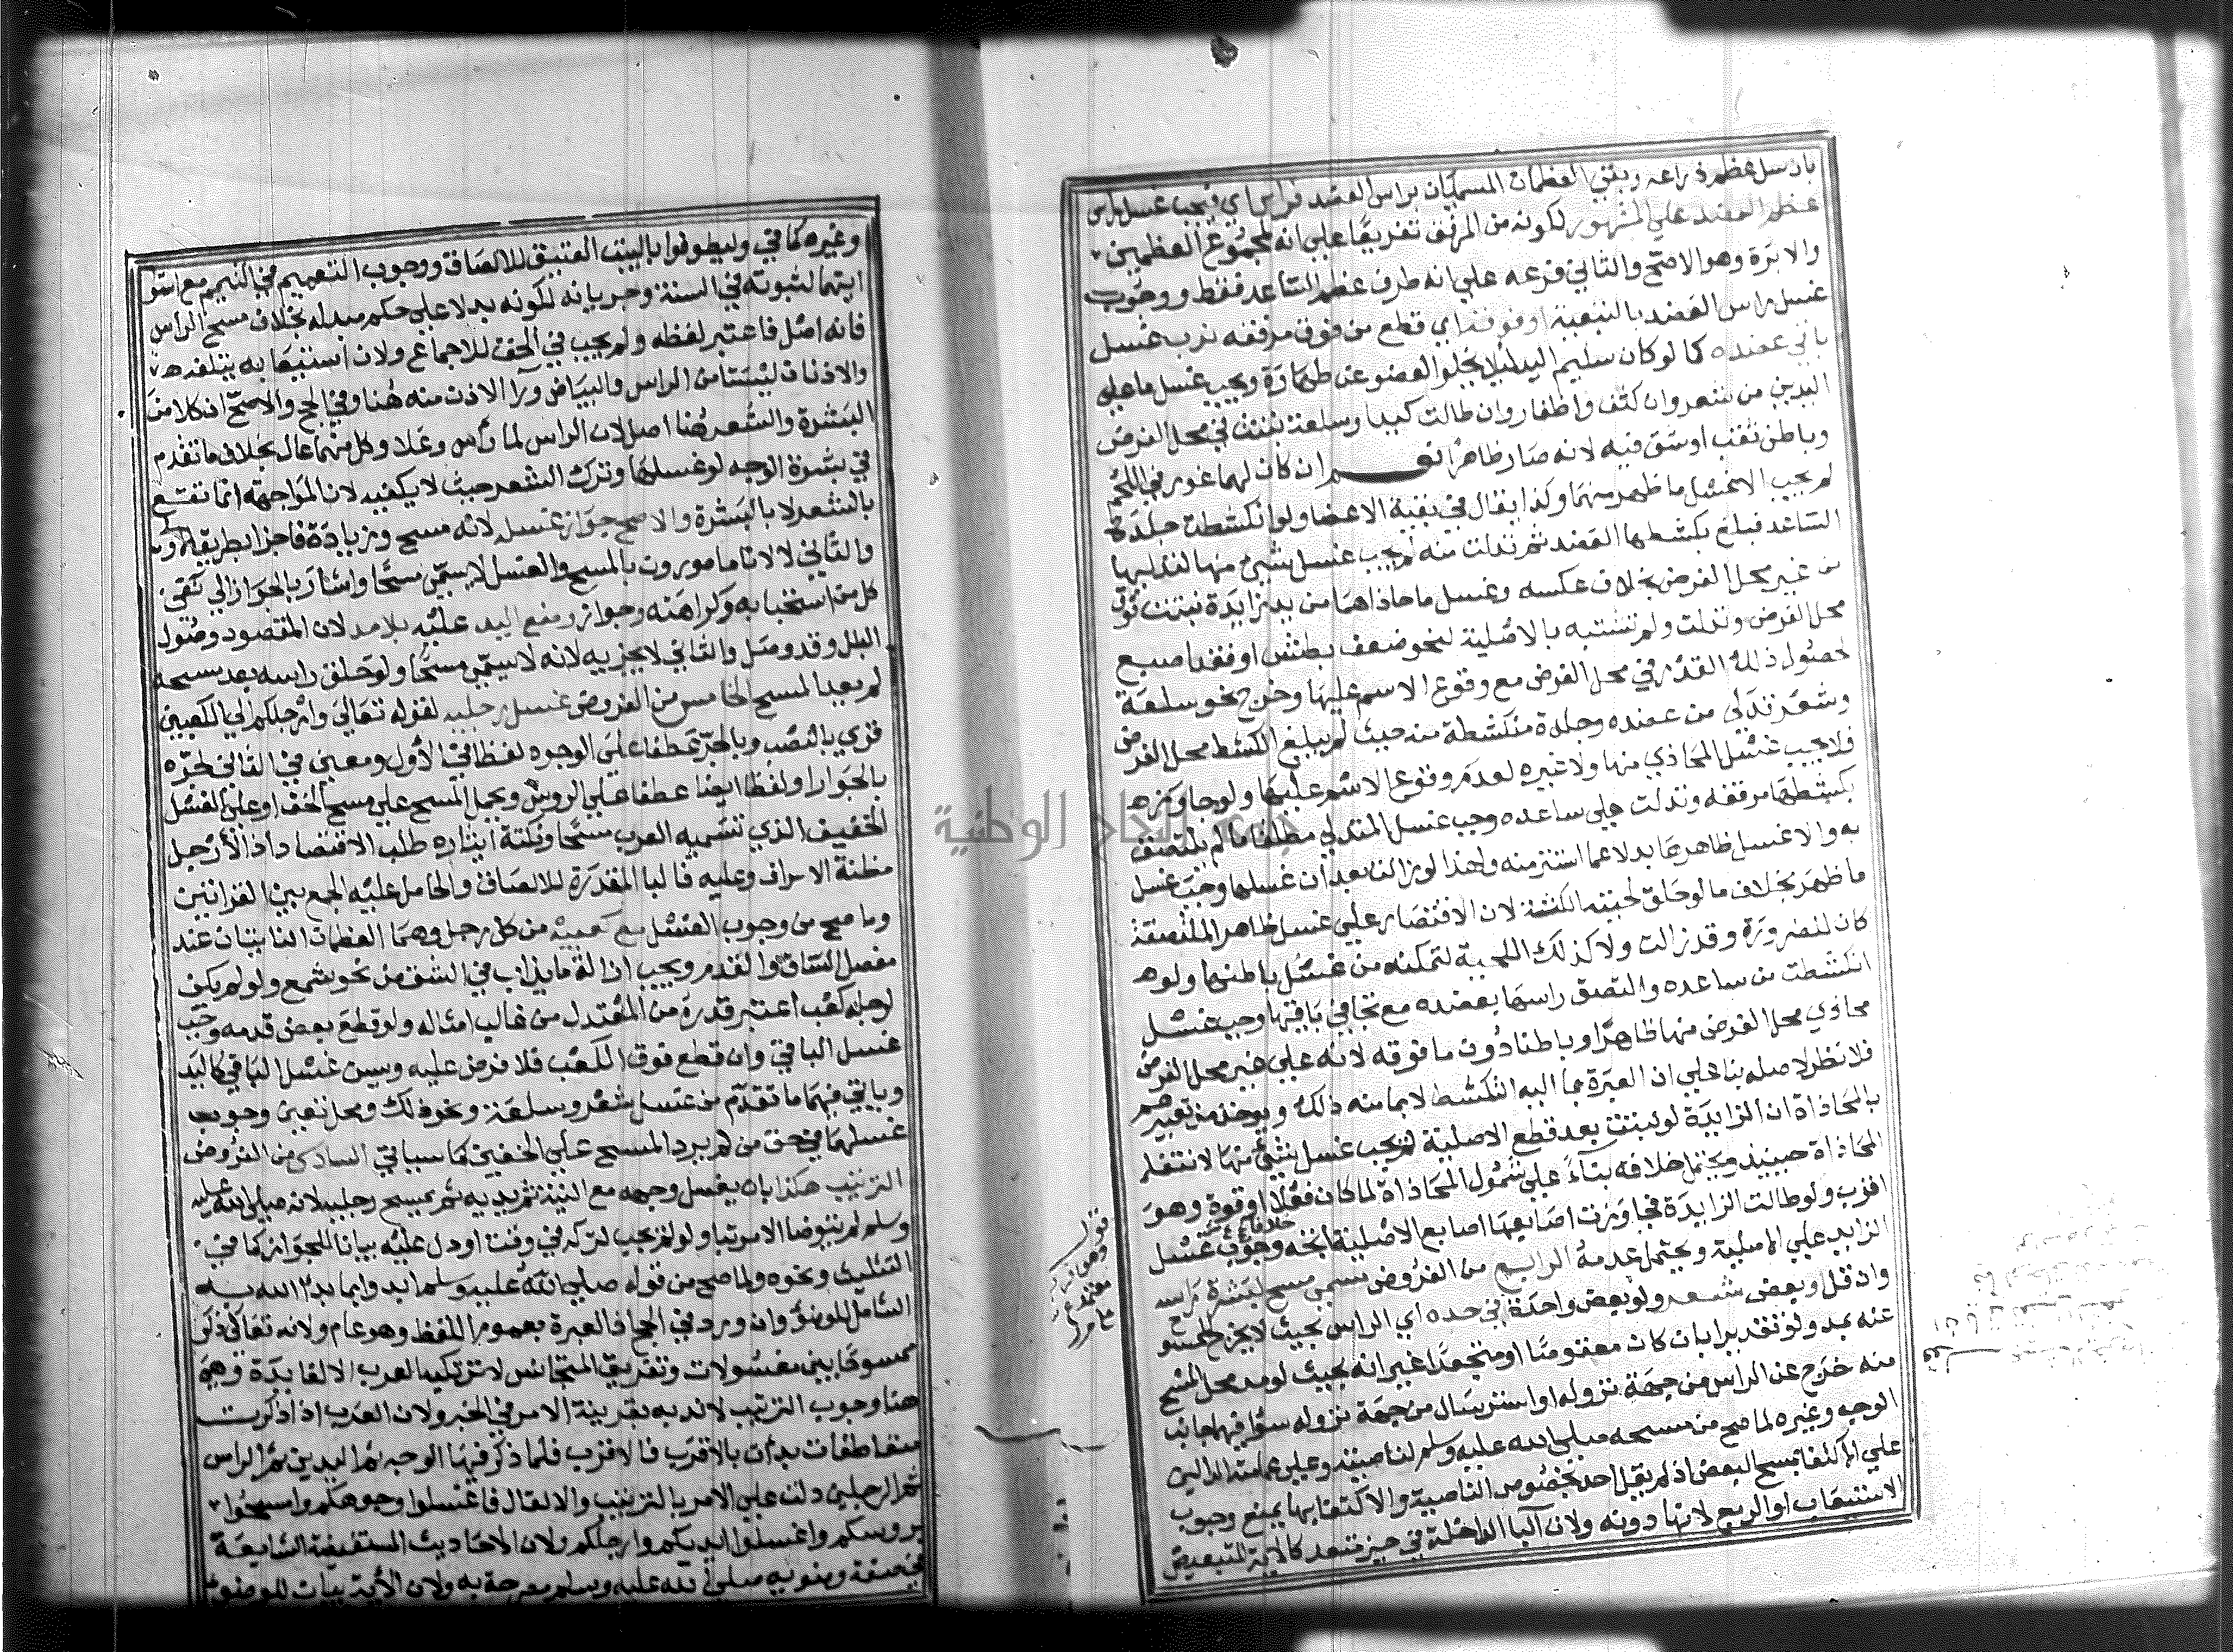 بان سل عظم ذراعه وبقي العظمان المسميان براس العضد فراس اي فيجب غسل راس
عظم العضد علي المشهور لكونه من المرفق تفريعا علي انه مجموع العظمين
والابرة وهو الاصح والثاني فرعه علي انه طرف عظم الساعد فقط ووجوب
غسل راس العضد بالتبعية او فوقه اي قطع من فوق مرفقه ندب غسل
باقي عضده كما لو كان سليم اليد ليلا يخلو العضو عن طهارة ويجب غسل ما علي
اليدين من شعر وان كثف واظفار وان طالت كيدا وسلعة نبتت في محل الفرض
وباطن ثقب او شق فيه لانه صار ظاهرا نعم ان كان لهما غور في اللحم
لم يجب الا غسل ما ظهر منهما وكذا يقال في بقية الاعضا ولو انكشطت جلدة
الساعد فبلغ بكشطها العضد ثم تدلت منه لم يجب غسل شيئ منها لتدليها
من غير محل الفرض بخلاف عكسه وغسل ما حاذاهما من يد زايدة نبتت فوق
محل الفرض وتدلت ولم تشتبه بالاصلية لنحو ضعف بطش او فقد اصبع
لحصول ذلك القدر في محل الفرض مع وقوع الاسم عليها وخرج نحو سلعة
وشعر تدلي من عضده وجلدة منكشطة منه حيث لم يبلغ الكشط محل الفرض
فلا يجب غسل المحاذي منها ولا غيره لعدم وقوع الاسم عليها ولو جاوزه
بكشطها مرفقه وتدلت علي ساعده وجب غسل المتدلي مطلقا ما لم يلتصق
به والا غسل ظاهرها بدلا عما استتر منه ولهذا لو زالت بعد ان غسلها وجب غسل
ما ظهر بخلاف ما لو حلق لحيته الكثة لان الاقتصار علي غسل ظاهر الملتصقة
كان لضرورة وقد زالت ولا كذلك اللحية لتمكنه من غسل باطنها ولو
انكشطت من ساعده والتصق راسها بعضده مع تجافي باقيها وجب غسل
محاذي محل الفرض منها ظاهرا وباطنا دون ما فوقه لانه علي غير محل الفرض
فلا نظر لاصله بنا علي ان العبرة بما اليه التكشط لا بما منه ذلك ويوخذ من تعبيرهم
بالمحاذاة ان الزايدة لو نبتت بعد قطع الاصلية لم يجب غسل شيئ منها لانتفا
المحاذاة حينيذ ويحتمل خلافه بناء علي شمول المحاذاة لما كان فعلا او قوة وهو
اقرب ولو طالت الزايدة فجاوزت اصابعها اصابع الاصلية اتجه وجوب غسل
الزايد علي الاصلية ويحتمل عدمه الرابع من الفروض مسمي مسح لبشرة راسه
وان قل وبعض شعر ولو بعض واحدة في حده اي الراس بحيث لا يخرج الممسوح
عنه بمد ولو تقديرا بان كان معقوصا او متجعدا غير انه بحيث لو مد محل المسح
منه خرج عن الراس من جهة نزوله او استرسال من جهة نزوله سوا فيها جانب
الوجه وغيره لما صح من مسحه صلي الله عليه وسلم لناصيته وعلي عمامته الدالين
علي الاكتفا بمسح البعض اذ لم يقل احد بخصوص الناصية والاكتفا بها يمنع وجوب
الاستيعاب او الربع لانها دونه ولان البا الداخلة في حيز متعدد كالاية للتبعيض
وغيره كما في وليطوفوا بالبيت العتيق للالصاق ووجوب التعميم في التيمم مع استوا
ايتهما لثبوته في السنة وجريانه لكونه بدلا علي حكم مبدله بخلاف مسح الراس
فانه اصل فاعتبر لفظه ولم يجب في الخف للاجماع ولان استيعابه يتلفه
والاذنان ليستا من الراس والبياض ورا الاذن منه هنا وفي الحج والاصح ان كلا من
البشرة والشعر هنا اصل لان الراس لما رأس وعلا وكل منهما عال بخلاف ما تقدم
في بشرة الوجه لو غسلها وترك الشعر حيث لا يكفيه لان المواجهة انما تقع
بالشعر لا بالبشرة والاصح جواز غسله لانه مسح وزيادة فاجزا بطريق
والثاني لا لانا مامورون بالمسح والغسل لا يسمي مسحا واشار بالجواز الي نفي
كل من استحبابه وكراهته وجواز وضع اليد عليه بلا مد لان المقصود وصول
البلل وقد وصل والثاني لا يجزيه لانه لا يسمي مسحا ولو حلق راسه بعد مسحه
لم يعد المسح الخامس من الفروض غسل رجليه لقوله تعالي وارجلكم الي الكعبين
قري بالنصب وبالجر عطفا علي الوجوه لفظا في الاول ومعني في الثاني لجره
بالجوار او لفظا ايضا عطفا علي الروس ويحمل المسح علي مسح الخف او علي الغسل
الخفيف الذي تسميه العرب مسحا ونكتة ايثاره طلب الاقتصاد اذ الأرجل
مظنة الاسراف وعليه فالبا المقدرة للالصاق والحامل عليه الجمع بين القرائتين
وما صح من وجوب الغسل مع كعبيه من كل رجل وهما العظمان الناتيان عند
مفصل الساق والقدم ويجب ازالة ما يذاب في الشق من نحو شمع ولو لم يكن
لرجله كعب اعتبر قدره من المعتدل من غالب امثاله ولو قطع بعض قدمه وجب
غسل الباقي وان قطع فوق الكعب فلا فرض عليه وسن غسل الباقي كاليد
وياتي فيهما ما تقدم من غسل شعر وسلعة ونحو ذلك ومحل تعين وجوب
غسلهما في حق من لم يرد المسح علي الخفين كما سياتي السادس من الفروض
الترتيب هكذا بان يغسل وجهه مع النية ثم يديه ثم يمسح رجليه لانه صلي الله عليه
وسلم لم يتوضا الا مرتبا ولو لم يجب لتركه في وقت او دل عليه بيانا للجواز كما في
التثليث ونحوه ولما صح من قوله صلي الله عليه وسلم ابدوا بما بدا الله به
الشامل للوضو وان ورد في الحج فالعبرة بعموم اللفظ وهو عام ولانه تعالي ذكر
ممسوحا بين مغسولات وتفريق المتجانس لا ترتكبه العرب الا لفايدة وهي
هنا وجوب الترتيب لا ندبه بقرينة الامر في الخبر ولان العرب اذا ذكرت
متعاطفات بدات بالاقرب فالاقرب فلما ذكر فيها الوجه ثم اليدين ثم الراس
ثم الرجلين دلت علي الامر بالترتيب والا لقال فاغسلوا وجوهكم وامسحوا
بروسكم واغسلوا ايديكم وارجلكم ولان الاحاديث المستفيضة الشايعة
في صفة وضويه صلي الله عليه وسلم مصرحة به ولان الاية بيان للوضو
جامعة النجاح الوطنية